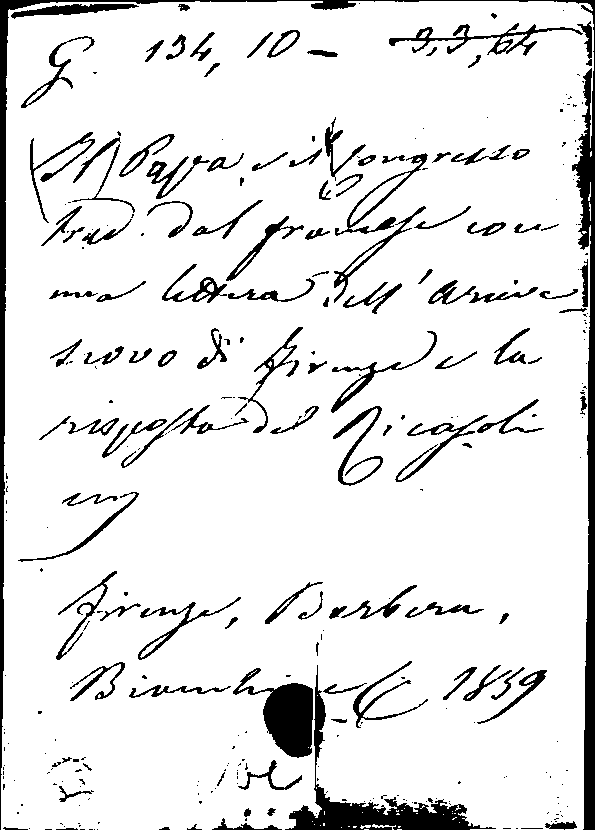 G. 134, 10 - 3,3,64
(Il) Papa e il Congresso
trad. dal francese con
una lettera dell' Arcive
scovo di Firenze e la
risposta del Ricasoli
Firenze, Barbera,
Bianchi e C 1859